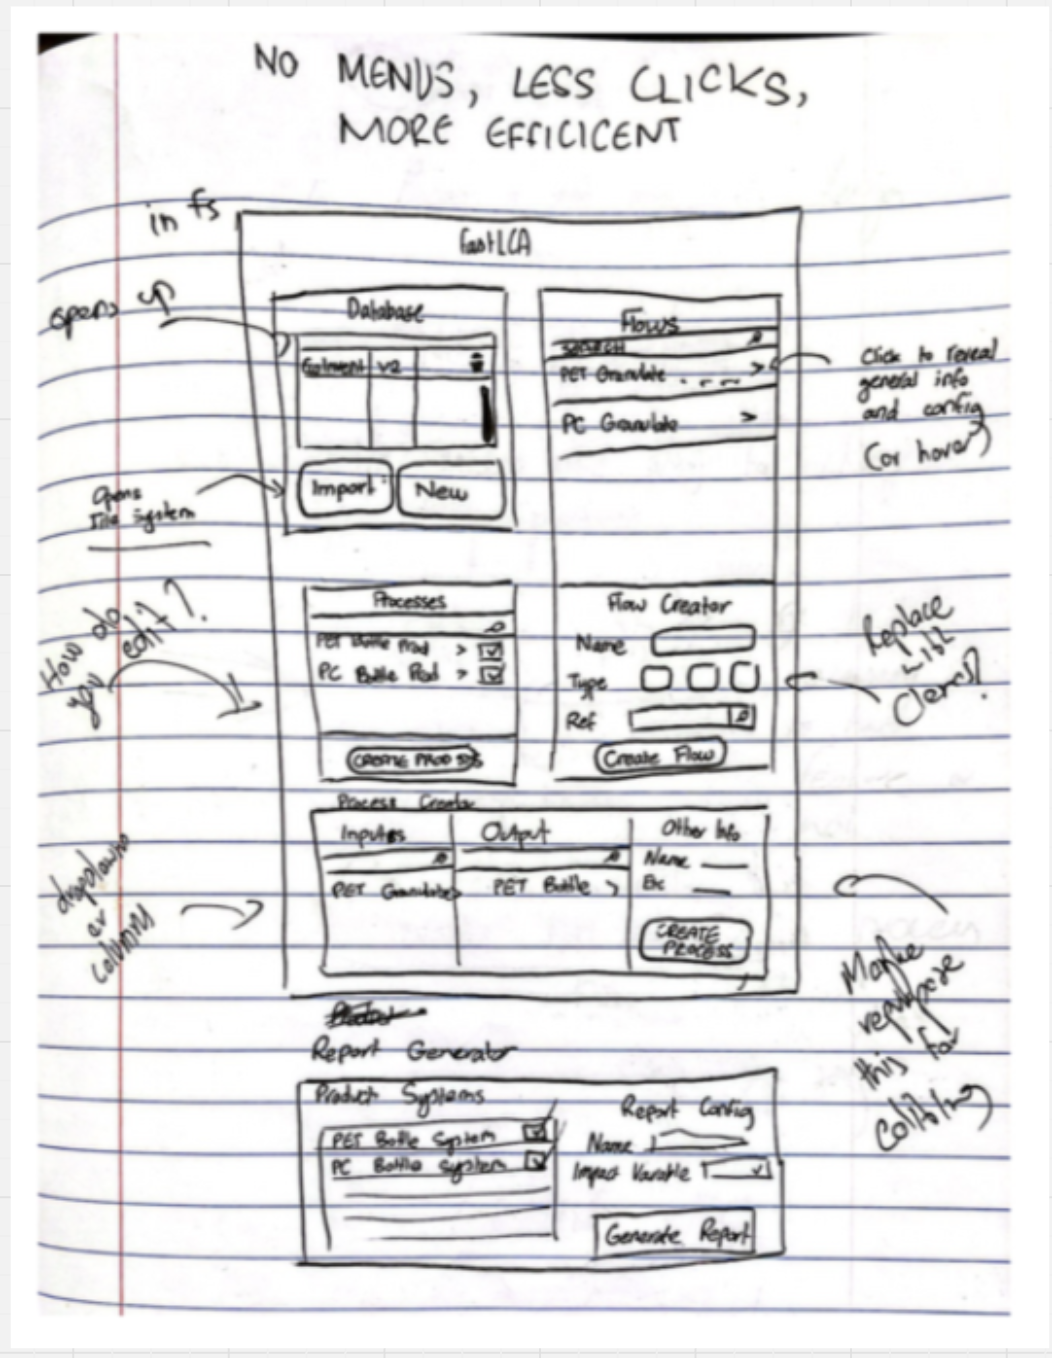 NO MENUS, LESS CLICKS,
MORE EFFICICENT
in fs
FastLCA
opens up
Database
v2
Import
New
Opens
File System
Flows
SEARCH
PET Granulate
PC Granulate
Click to reveal
general info
and config
(or hover)
How do
you edit?
Processes
PET Bottle Prod >
PC Bottle Prod >
CREATE PROD SYS
Flow Creator
Name
Type
Ref
Create Flow
Replace
Process Creator
Inputs
PET Granulate >
Output
PET Bottle >
Other Info
Name
Etc
CREATE
PROCESS
dropdowns
or
columns
Maybe
repurpose
this for
Report Generator
Product Systems
PET Bottle System
PC Bottle System
Report Config
Name
Impact Variable
Generate Report